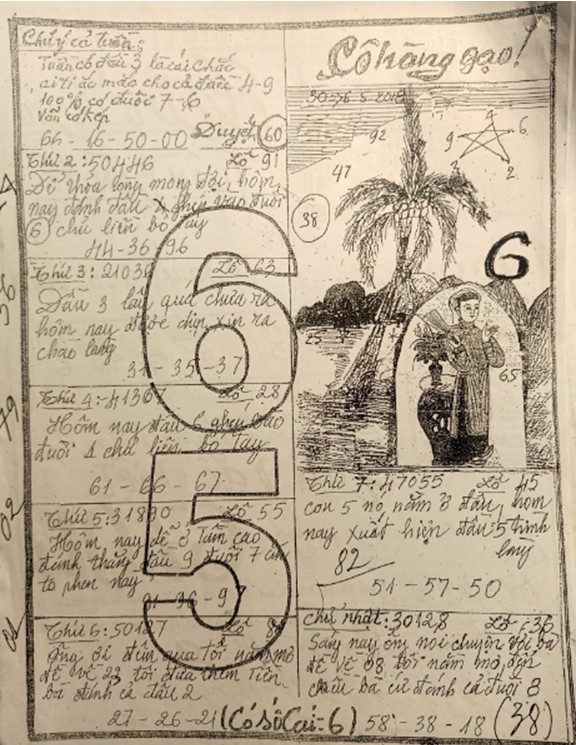 Chú ý cả tuần:
Tuần có đầu 3 là cái chắc
ai tỉ ảo mão cho cả đầu 4-9
100% có đuôi 7-6
Vẫn có kép
66-16-50-00 Duyệt 60
Thứ 2: 50446 Lô 91
Đề thỏa lòng mong đợi, hôm
nay đánh đầu x ghép vào đuôi
6 chủ liền bó tay
44-36-96
Thứ 3: 2103 Lô 63
Đầu 3 lâu quá chưa ra
hôm nay được dịp xin ra
chào làng
31-35-37
Thứ 4: 41367 Lô 28
Hôm nay đầu 6 ghép vào
đuôi 1 chủ liền bó tay
61-66-67
Thứ 5: 318 0 Lô 55
Hôm nay đề ở trên cao
đánh thẳng đầu 9 đuôi 7 ăn
to phen này
91-96-9
Thứ 6: 501 7 Lô 8
Ông ơi đêm qua tôi nằm mơ
đề về 23 tôi đưa thêm tiền
bà đánh cả đầu 2
27-26-21 (Có số Cai-6)
65
Cô hàng gạo!
30-5→6-5-2018
92
47
38
4
9
6
2
6
25
65
Thứ 7: 47055 Lô 45
con 5 nó nằm ở đâu, hôm
nay xuất hiện đầu 5 linh
hay
82
51-57-50
Chủ nhật: 30128 Lô: 36
Sáng nay ông nói chuyện với bà
đề về 08 tôi nằm mơ đến
chiều bà cứ đánh cả đuôi 8
58-38-18 (38)
79
02